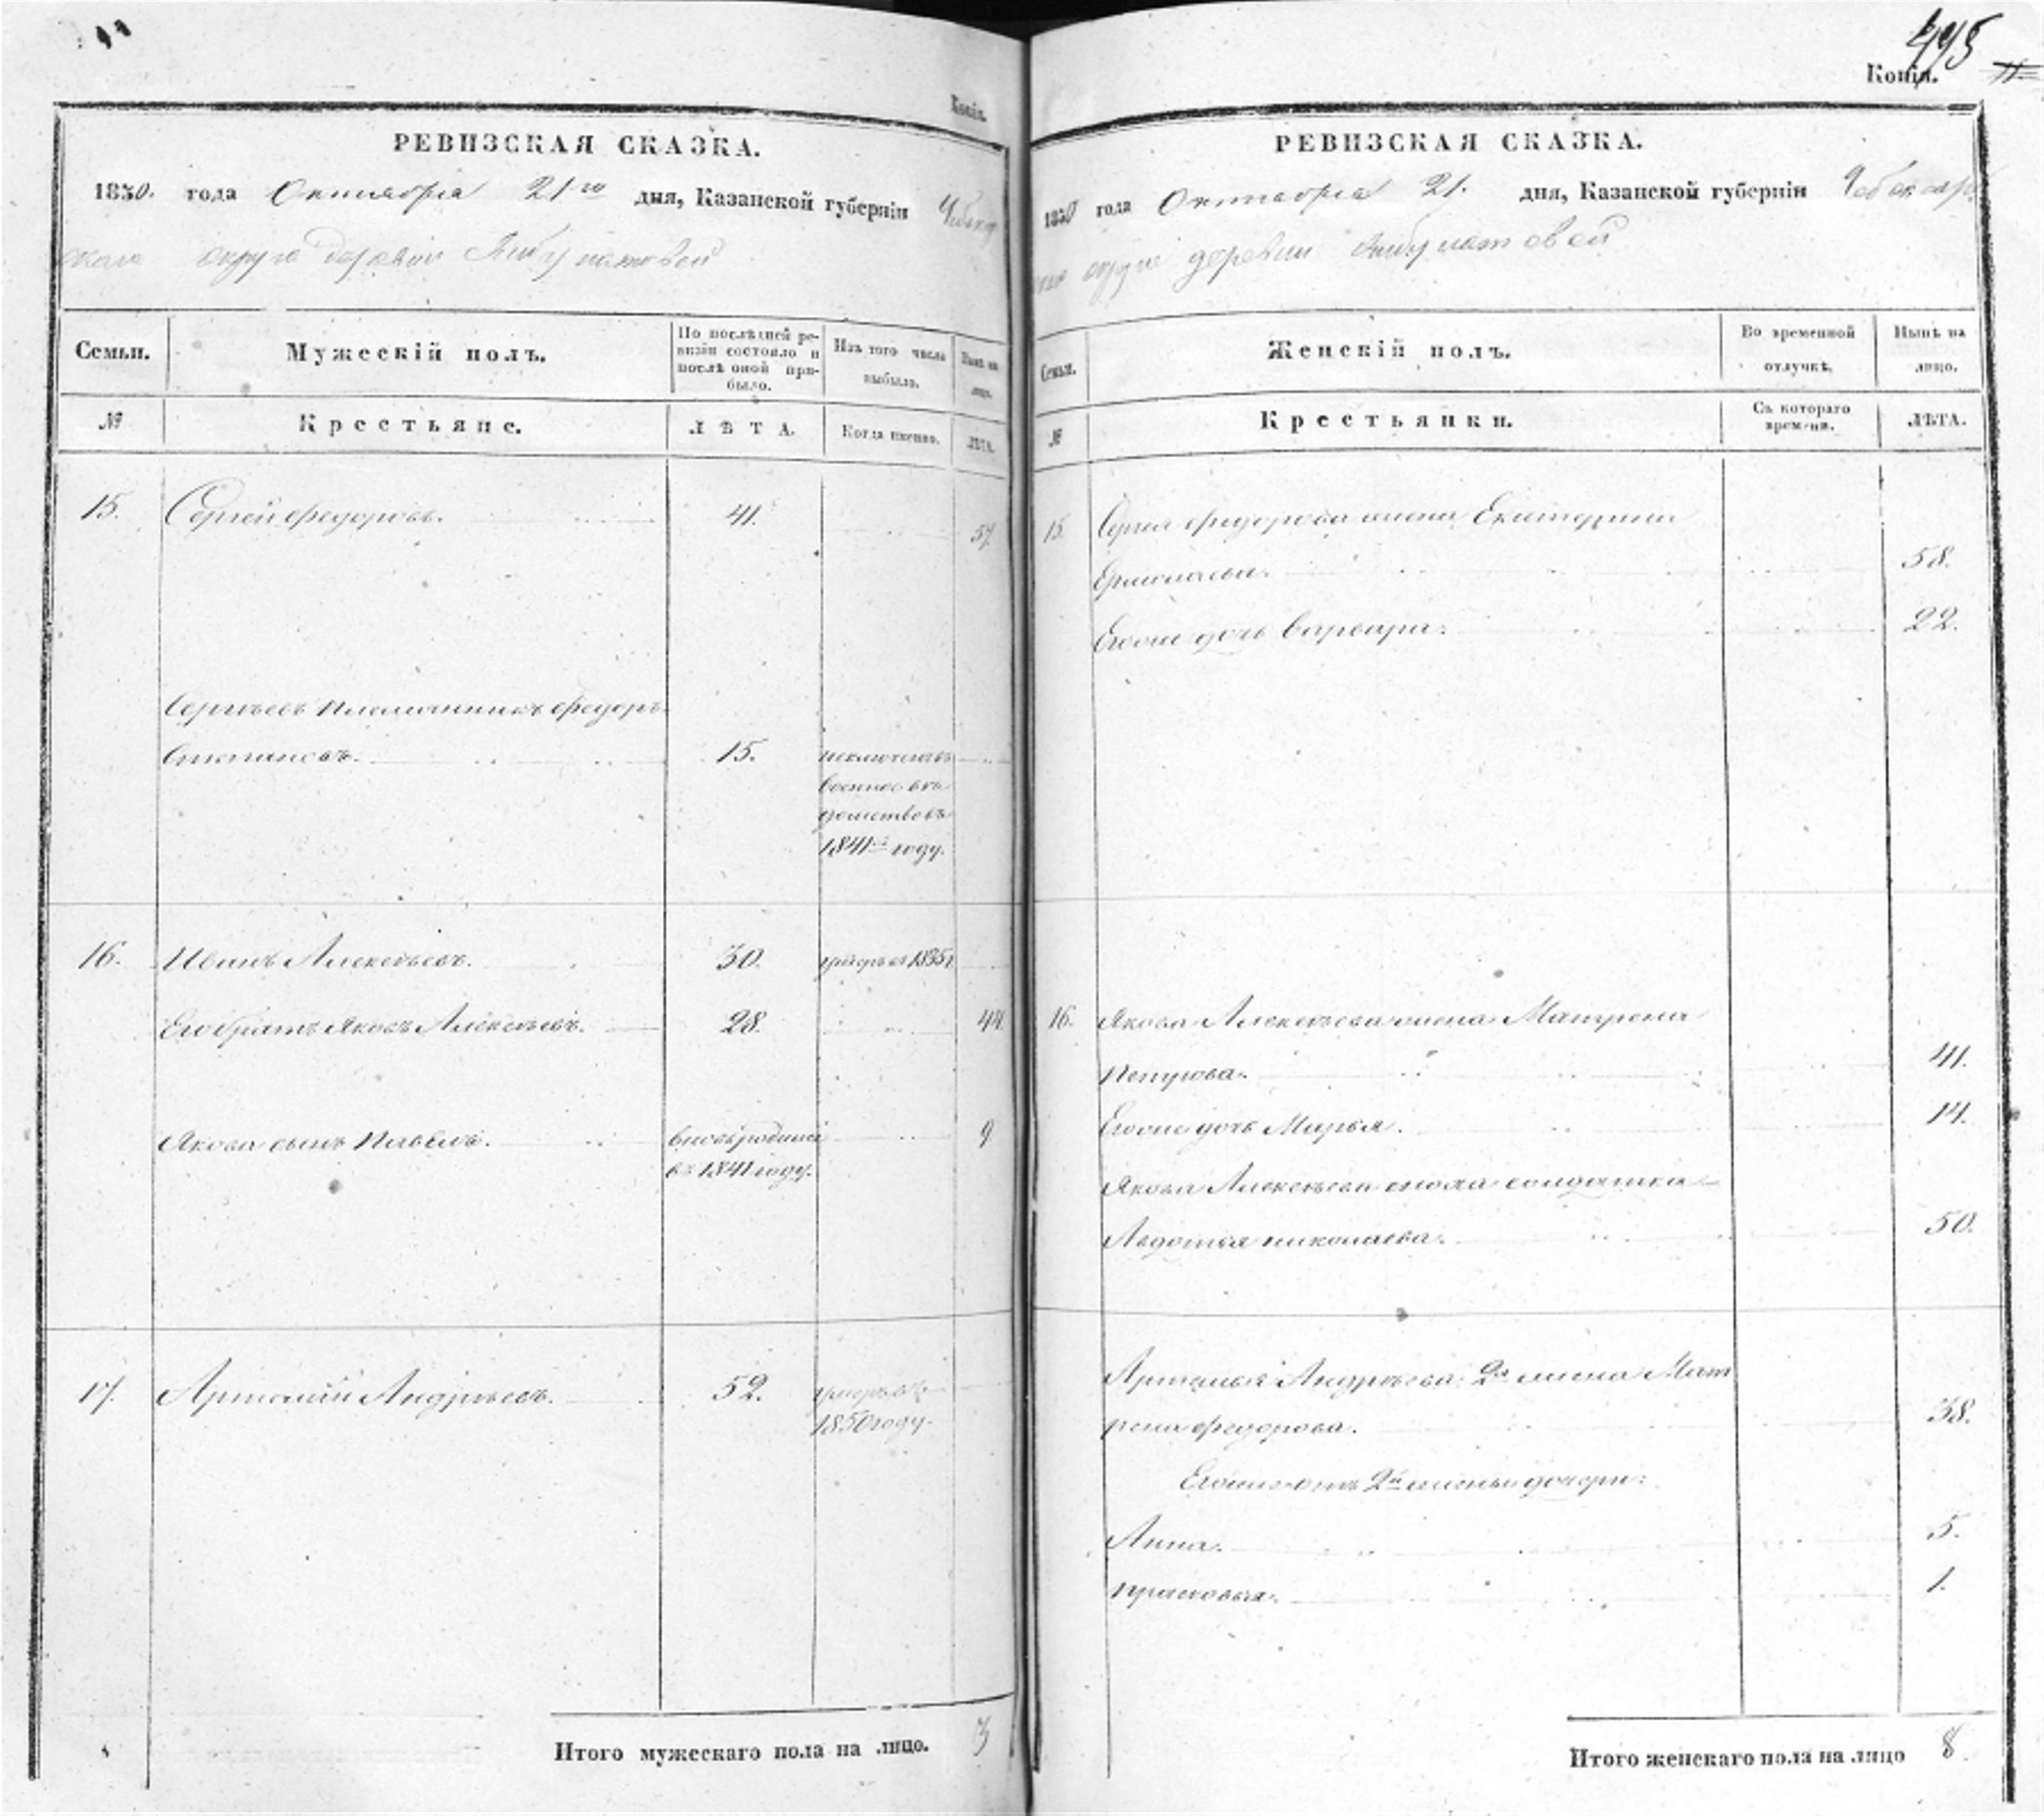 Копія.
РЕВИЗСКАЯ СКАЗКА.
1850. года Октября 21го дня, Казанской губерніи
округа деревни
Семьи. Мужескій полъ. По послѣдней ревизіи состояло и послѣ оной прибыло. Изъ того числа выбыло. Нынѣ на лицо.
№ Крестьяне. ЛѢТА. Когда именно. ЛѢТА.
15. Сергей Федоровъ. 41. 57
Сергѣевъ племянникъ Федоръ
Степановъ. 15. исключенъ въ
военное вѣ
домство въ
1841м году.
16. Иванъ Алексѣевъ. 30. умеръ въ 1835
Его братъ Яковъ Алексѣевъ. 28. 44
Якова сынъ Павелъ. вновь родился 9
въ 1841 году.
17. Артемій Андрѣевъ. 52. умеръ въ
1850 году.
Итого мужескаго пола на лицо. 3
495
Копія.
РЕВИЗСКАЯ СКАЗКА.
1850 года Октября 21. дня, Казанской губерніи Чебоксар
округи деревни
Семьи. Женскій полъ. Во временной отлучкѣ. Нынѣ на лицо.
№ Крестьянки. Съ котораго времени. ЛѢТА.
15. Сергея Федорова жена Екатерина
Ермолаева. 58.
Егоже дочь Варвара. 22.
16. Якова Алексѣева жена Матрена
Петрова. 41.
Егоже дочь Марья. 14.
Якова Алексѣева сноха солдатка
Авдотья Николаева. 50.
Артемья Андрѣева 2я жена Мат
рена Федорова. 38.
Егоже отъ 2й жены дочери:
Анна. 5.
Прасковья. 1.
Итого женскаго пола на лицо 8.